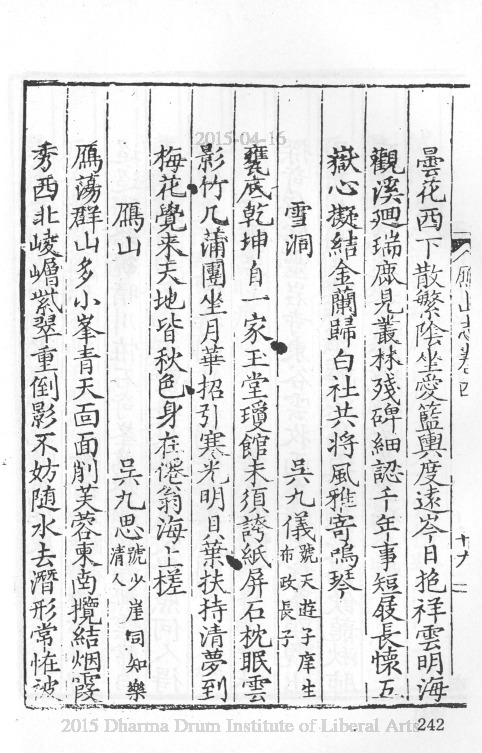 曇花西下散繁陰坐愛籃輿度遠岑日抱祥雲明海
觀溪廻瑞鹿見叢林殘碑細認千年事短屐長懷五
嶽心擬結金蘭歸白社共將風雅寄鳴琴
雪洞 吳九儀號天遊子庠生布政長子
甕底乾坤自一家玉堂瓊館未須誇紙屏石枕眠雲
影竹几蒲團坐月華招引寒光明貝葉扶持清夢到
梅花覺来天地皆秋色身在僊翁海上槎
鴈山 吳九思號少崖同知樂清人
鴈蕩群山多小峯青天面面削芙蓉東南攬結烟霞
秀西北崚嶒紫翠重倒影不妨隨水去潛形常恠被
鴈山志卷四
十九
2015-04-16
2015 Dharma Drum Institute of Liberal Arts
242